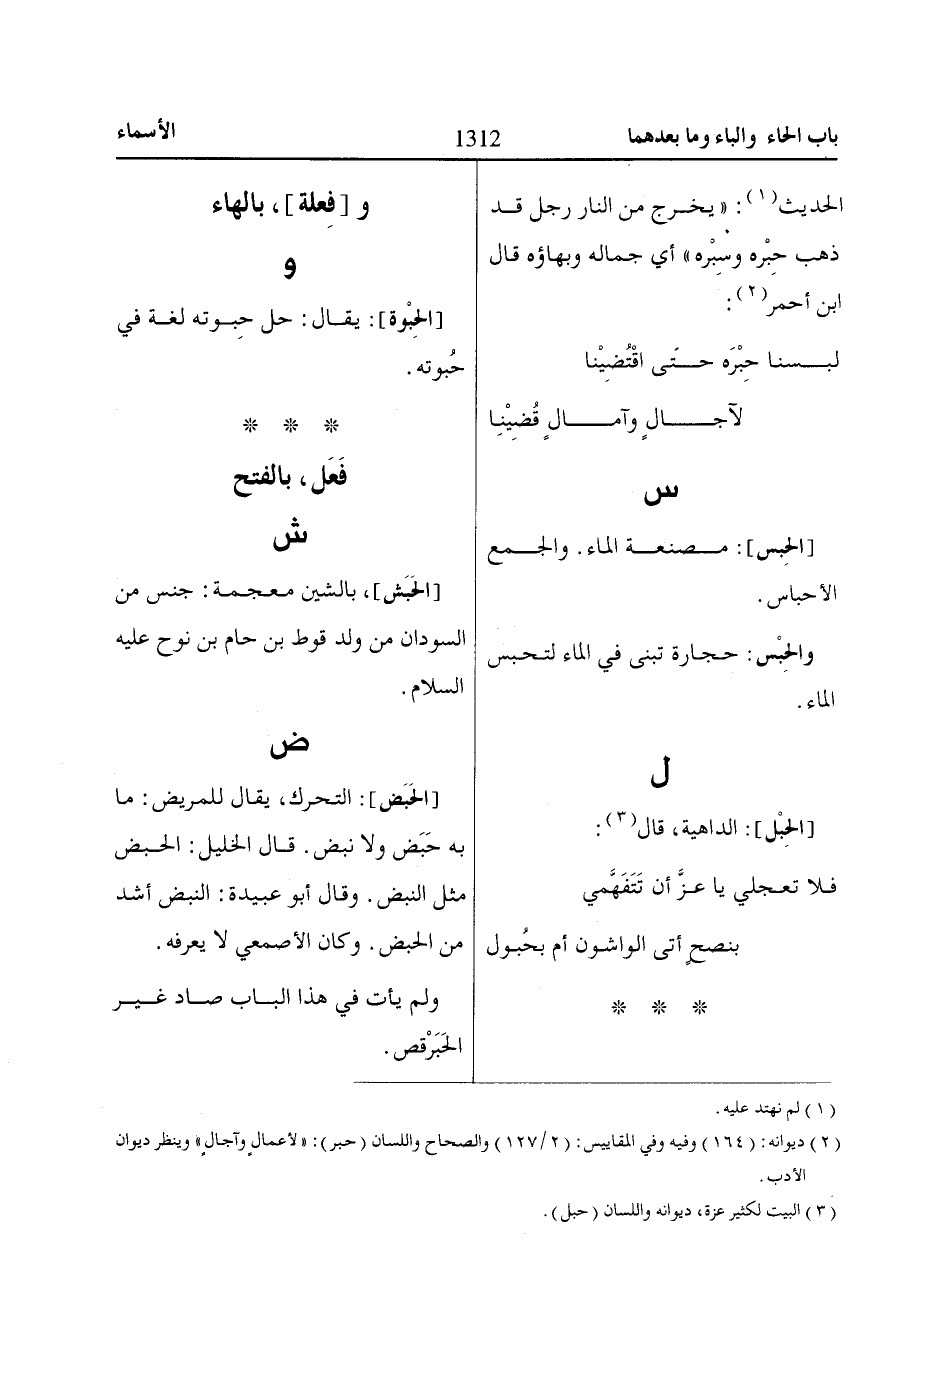 باب الحاء والباء وما بعدهما 1312 الأسماء
الحديث(١): « يخرج من النار رجل قد
ذهب حِبْره وسِبْره » أي جماله وبهاؤه قال
ابن أحمر(٢):
لبسنا حِبْرَه حتَى اقْتُضِيْنا
لآجالٍ وآمالٍ قُضِيْنِا
س
[الحِبس]: مصنعة الماء. والجمع
الأحباس.
والحِبْس: حجارة تبنى في الماء لتحبس
الماء.
ل
[الحِبْل]: الداهية، قال(٣):
فلا تعجلي يا عزَّ أن تَتَفَهَّمي
بنصحٍ أتى الواشون أم بحُبول
* * *
و [فِعلة]، بالهاء
و
[الحِبْوة]: يقال: حل حِبوته لغة في
حُبوته.
* * *
فَعَل، بالفتح
ش
[الحَبَش]، بالشين معجمة: جنس من
السودان من ولد قوط بن حام بن نوح عليه
السلام.
ض
[الحَبَض]: التحرك، يقال للمريض: ما
به حَبَض ولا نبض. قال الخليل: الحبض
مثل النبض. وقال أبو عبيدة: النبض أشد
من الحبض. وكان الأصمعي لا يعرفه.
ولم يأت في هذا الباب صاد غير
الحَبَرْقص.
(١) لم نهتد عليه.
(٢) ديوانه: (١٦٤) وفيه وفي المقاييس: (١٢٧/٢) والصحاح واللسان (حبر): «لأعمالٍ وآجالٍ» وينظر ديوان
الأدب.
(٣) البيت لكثير عزة، ديوانه واللسان (حبل).